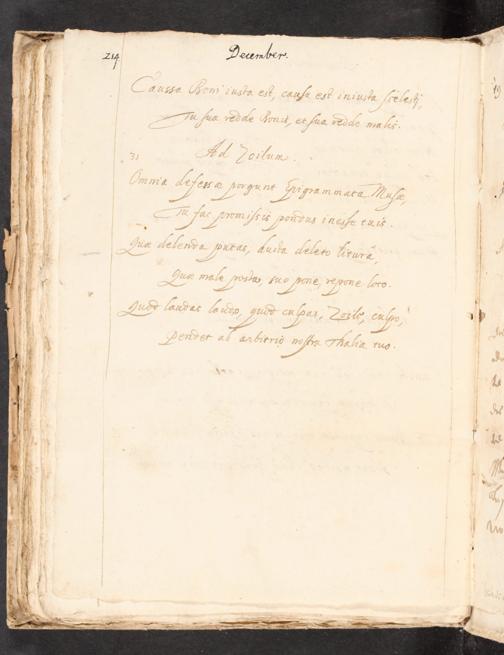 214 December.
Caussa Boni iusta est, causa est iniusta scelesti,
Tu sua redde Bonis, et sua redde malis.
31 Ad Zoilum.
Omnia defessæ porgunt Epigrammata Musæ,
Tu fac promissis pondus inesse tuis.
Quæ delenda putas, ducta deleto litura,
Quæ male posta, suo pone, repone loco.
Quod laudas laudo, quod culpas, Zoile, culpo,
Pendet ab arbitrio nostra Thalia tuo.